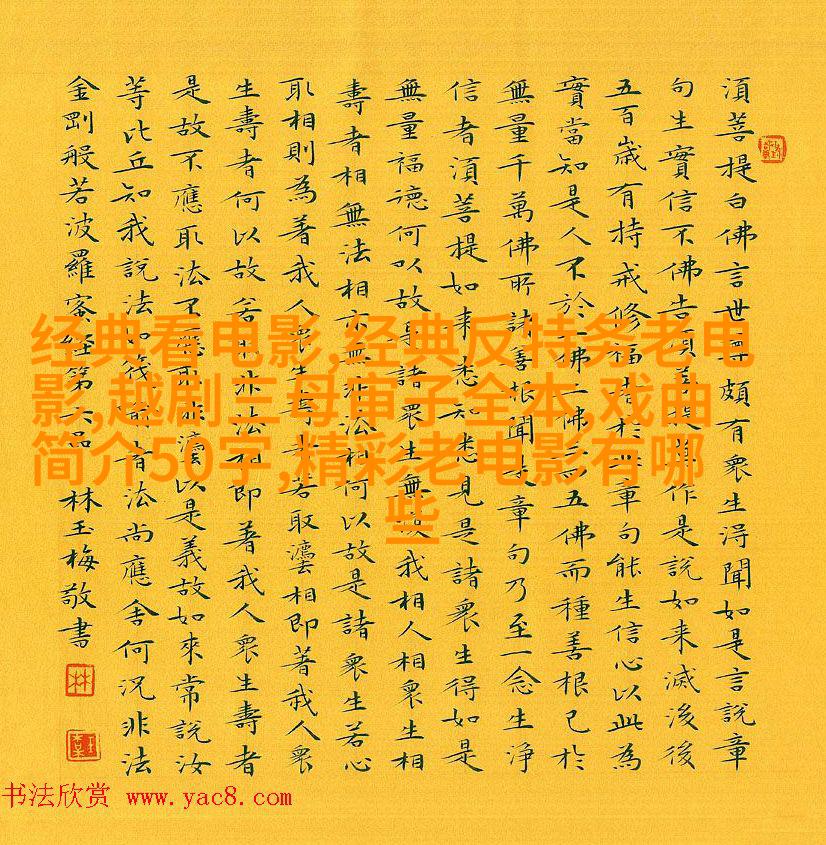 須菩提白佛言世尊頗有衆生得聞如是言說章
句生實信不佛告須菩提莫作是說如来滅後後
五百歲有持戒修福者於此章句能生信心以此為
實當知是人不於一佛二佛三四五佛而種善根已於
無量千萬佛所諸善根聞是章句乃至一念生淨
信者須菩提如来悉知悉見是諸衆生得如是
無量福德何以故是諸衆生無復我相人相衆生相
壽者相無法相亦無非法相何以故是諸衆生若心
取相則為著我人衆生壽者若取灋相即著我人衆
生壽者何以故若取非法相即著我人衆生壽者
是故不應取法不應取非灋以是義故如來常說汝
等比丘知我說法如筏喻者法尚應舍何況非法
金剛般若波羅蜜經第六品 林玉梅敬書
经典看电影,经典反特务老电
影,越剧三母审子全本,戏曲
简介50字,精彩老电影有哪
些
书法欣赏 www.yac8.com